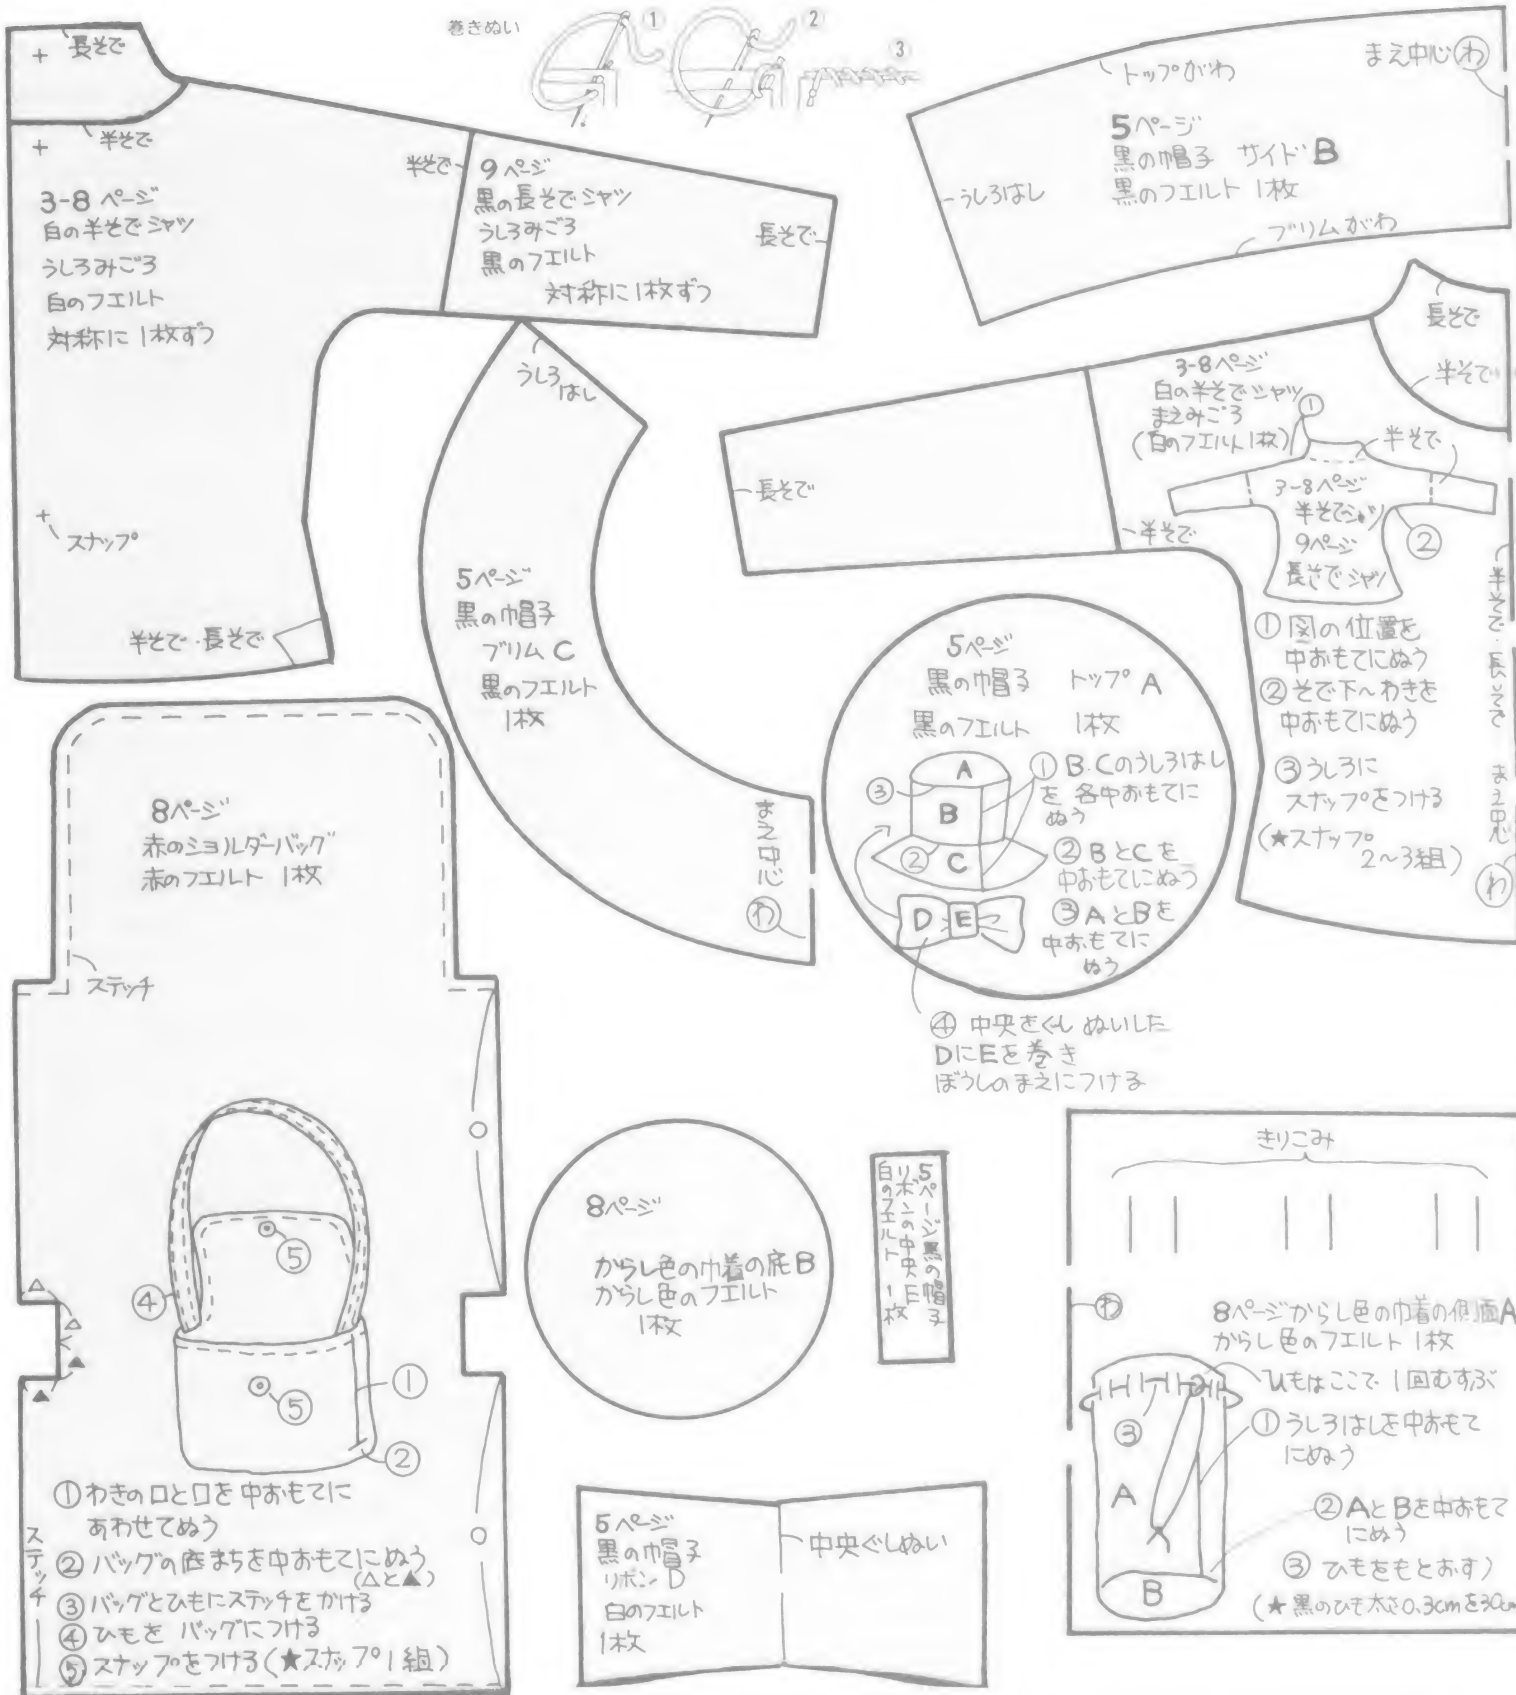 巻きぬい
①
②
③
長そで
半そで
3-8ページ
白の半そでシャツ
うしろみごろ
白のフエルト
対称に1枚ずつ
スナップ
半そで・長そで
半そで
9ページ
黒の長そでシャツ
うしろみごろ
黒のフエルト
対称に1枚ずつ
長そで
トップがわ
まえ中心 わ
5ページ
黒の帽子 サイドB
黒のフエルト 1枚
うしろはし
ブリムがわ
うしろはし
5ページ
黒の帽子
ブリム C
黒のフエルト
1枚
まえ中心
わ
長そで
半そで
長そで
半そで
3-8ページ
白の半そでシャツ
まえみごろ
(白のフエルト1枚)
①
半そで
3-8ページ
半そでシャツ
9ページ
長そでシャツ
②
①図の位置を
中おもてにぬう
②そで下〜わきを
中おもてにぬう
③うしろに
スナップをつける
(★スナップ
2〜3組)
半そで・長そで まえ中心
わ
5ページ
黒の帽子 トップ A
黒のフエルト 1枚
A
B
C
D
E
③
②
①B.Cのうしろはし
を 各中おもてに
ぬう
②BとCを
中おもてにぬう
③AとBを
中おもてに
ぬう
④中央をぐしぬいした
DにEを巻き
ぼうしのまえにつける
8ページ
赤のショルダーバッグ
赤のフエルト 1枚
ステッチ
⑤
④
⑤
①
②
①わきの口と口を中おもてに
あわせてぬう
②バッグの底まちを中おもてにぬう
(△と▲)
③バッグとひもにステッチをかける
④ひもを バッグにつける
⑤スナップをつける(★スナップ1組)
ステッチ
8ページ
からし色の巾着の底B
からし色のフエルト
1枚
5ページ黒の帽子
リボンの中央E
白のフエルト 1枚
5ページ
黒の帽子
リボン D
白のフエルト
1枚
中央ぐしぬい
きりこみ
わ
8ページからし色の巾着の側面A
からし色のフエルト 1枚
ひもはここで1回むすぶ
③
A
B
①うしろはしを中おもて
にぬう
②AとBを中おもて
にぬう
③ひもをもとおす)
(★黒のひも太さ0.3cmを30cm